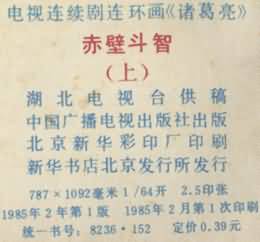 电视连续剧连环画《诸葛亮》
赤壁斗智
(上)
湖北电视台供稿
中国广播电视出版社出版
北京新华彩印厂印刷
新华书店北京发行所发行
787×1092毫米 1/64开 2.5印张
1985年2年第1版 1985年2月第1次印刷
统一书号:8236·152 定价0.39元